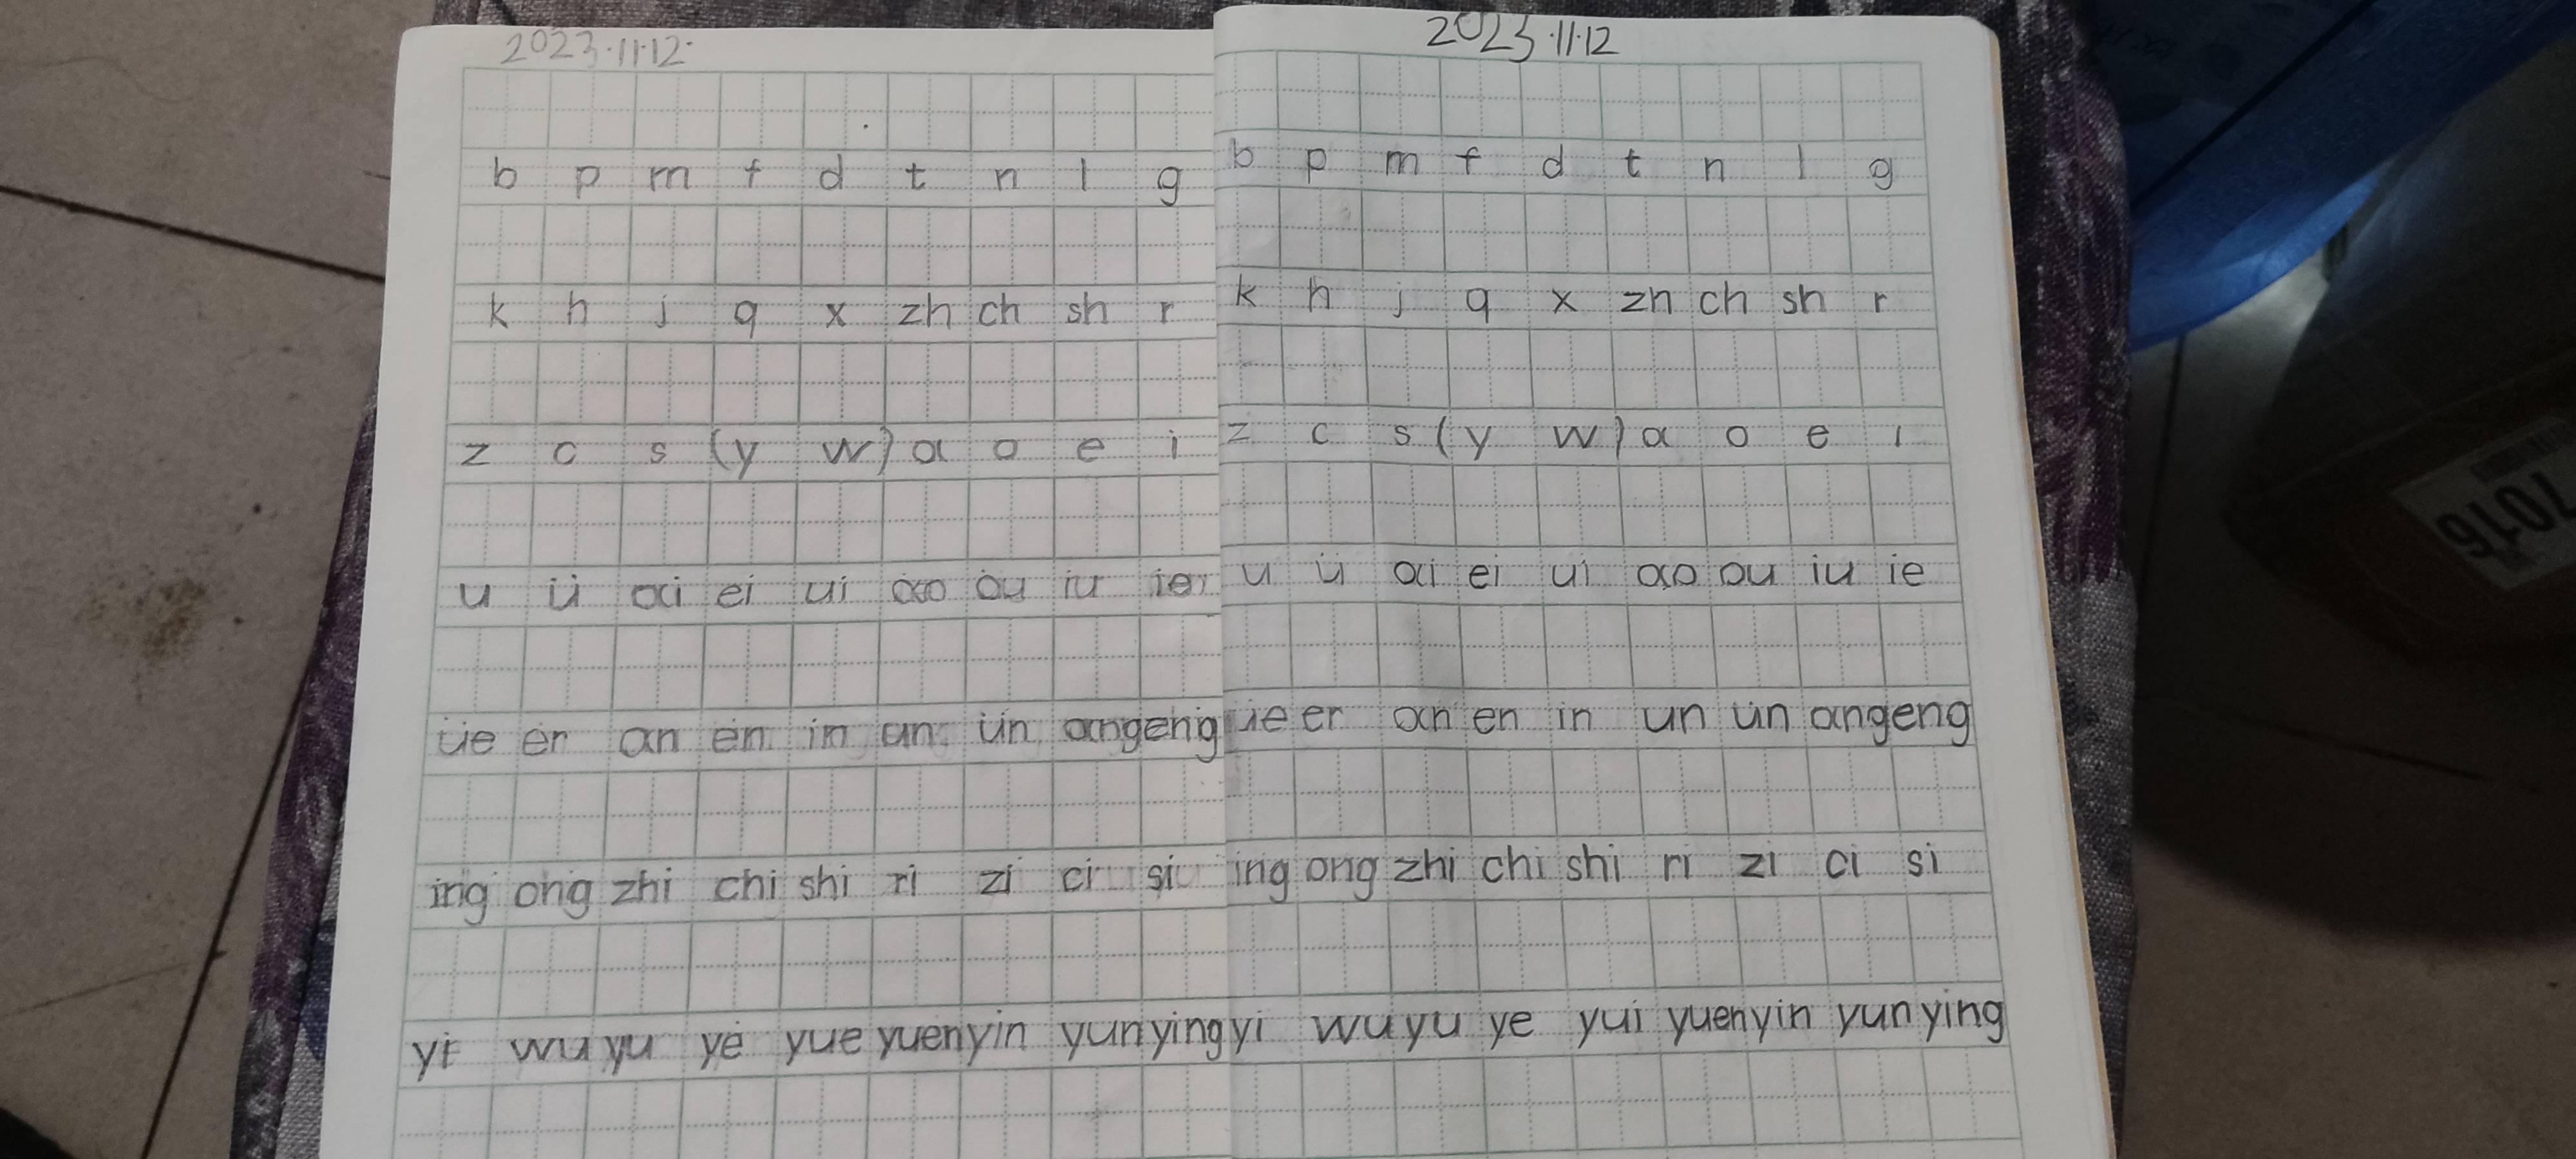 2023.11.12.
b p m f d t n l g
k h j q x zh ch sh r
z c s (y w) a o e i
u ü ai ei ui ao ou iu ie
üe er an en in un ün ang eng
ing ong zhi chi shi ri zi ci si
yi wu yu ye yue yuen yin yun ying
2023.11.12
b p m f d t n l g
k h j q x zh ch sh r
z c s (y w) a o e i
u ü ai ei ui ao ou iu ie
üe er an en in un ün ang eng
ing ong zhi chi shi ri zi ci si
yi wu yu ye yui yuen yin yun ying
7016